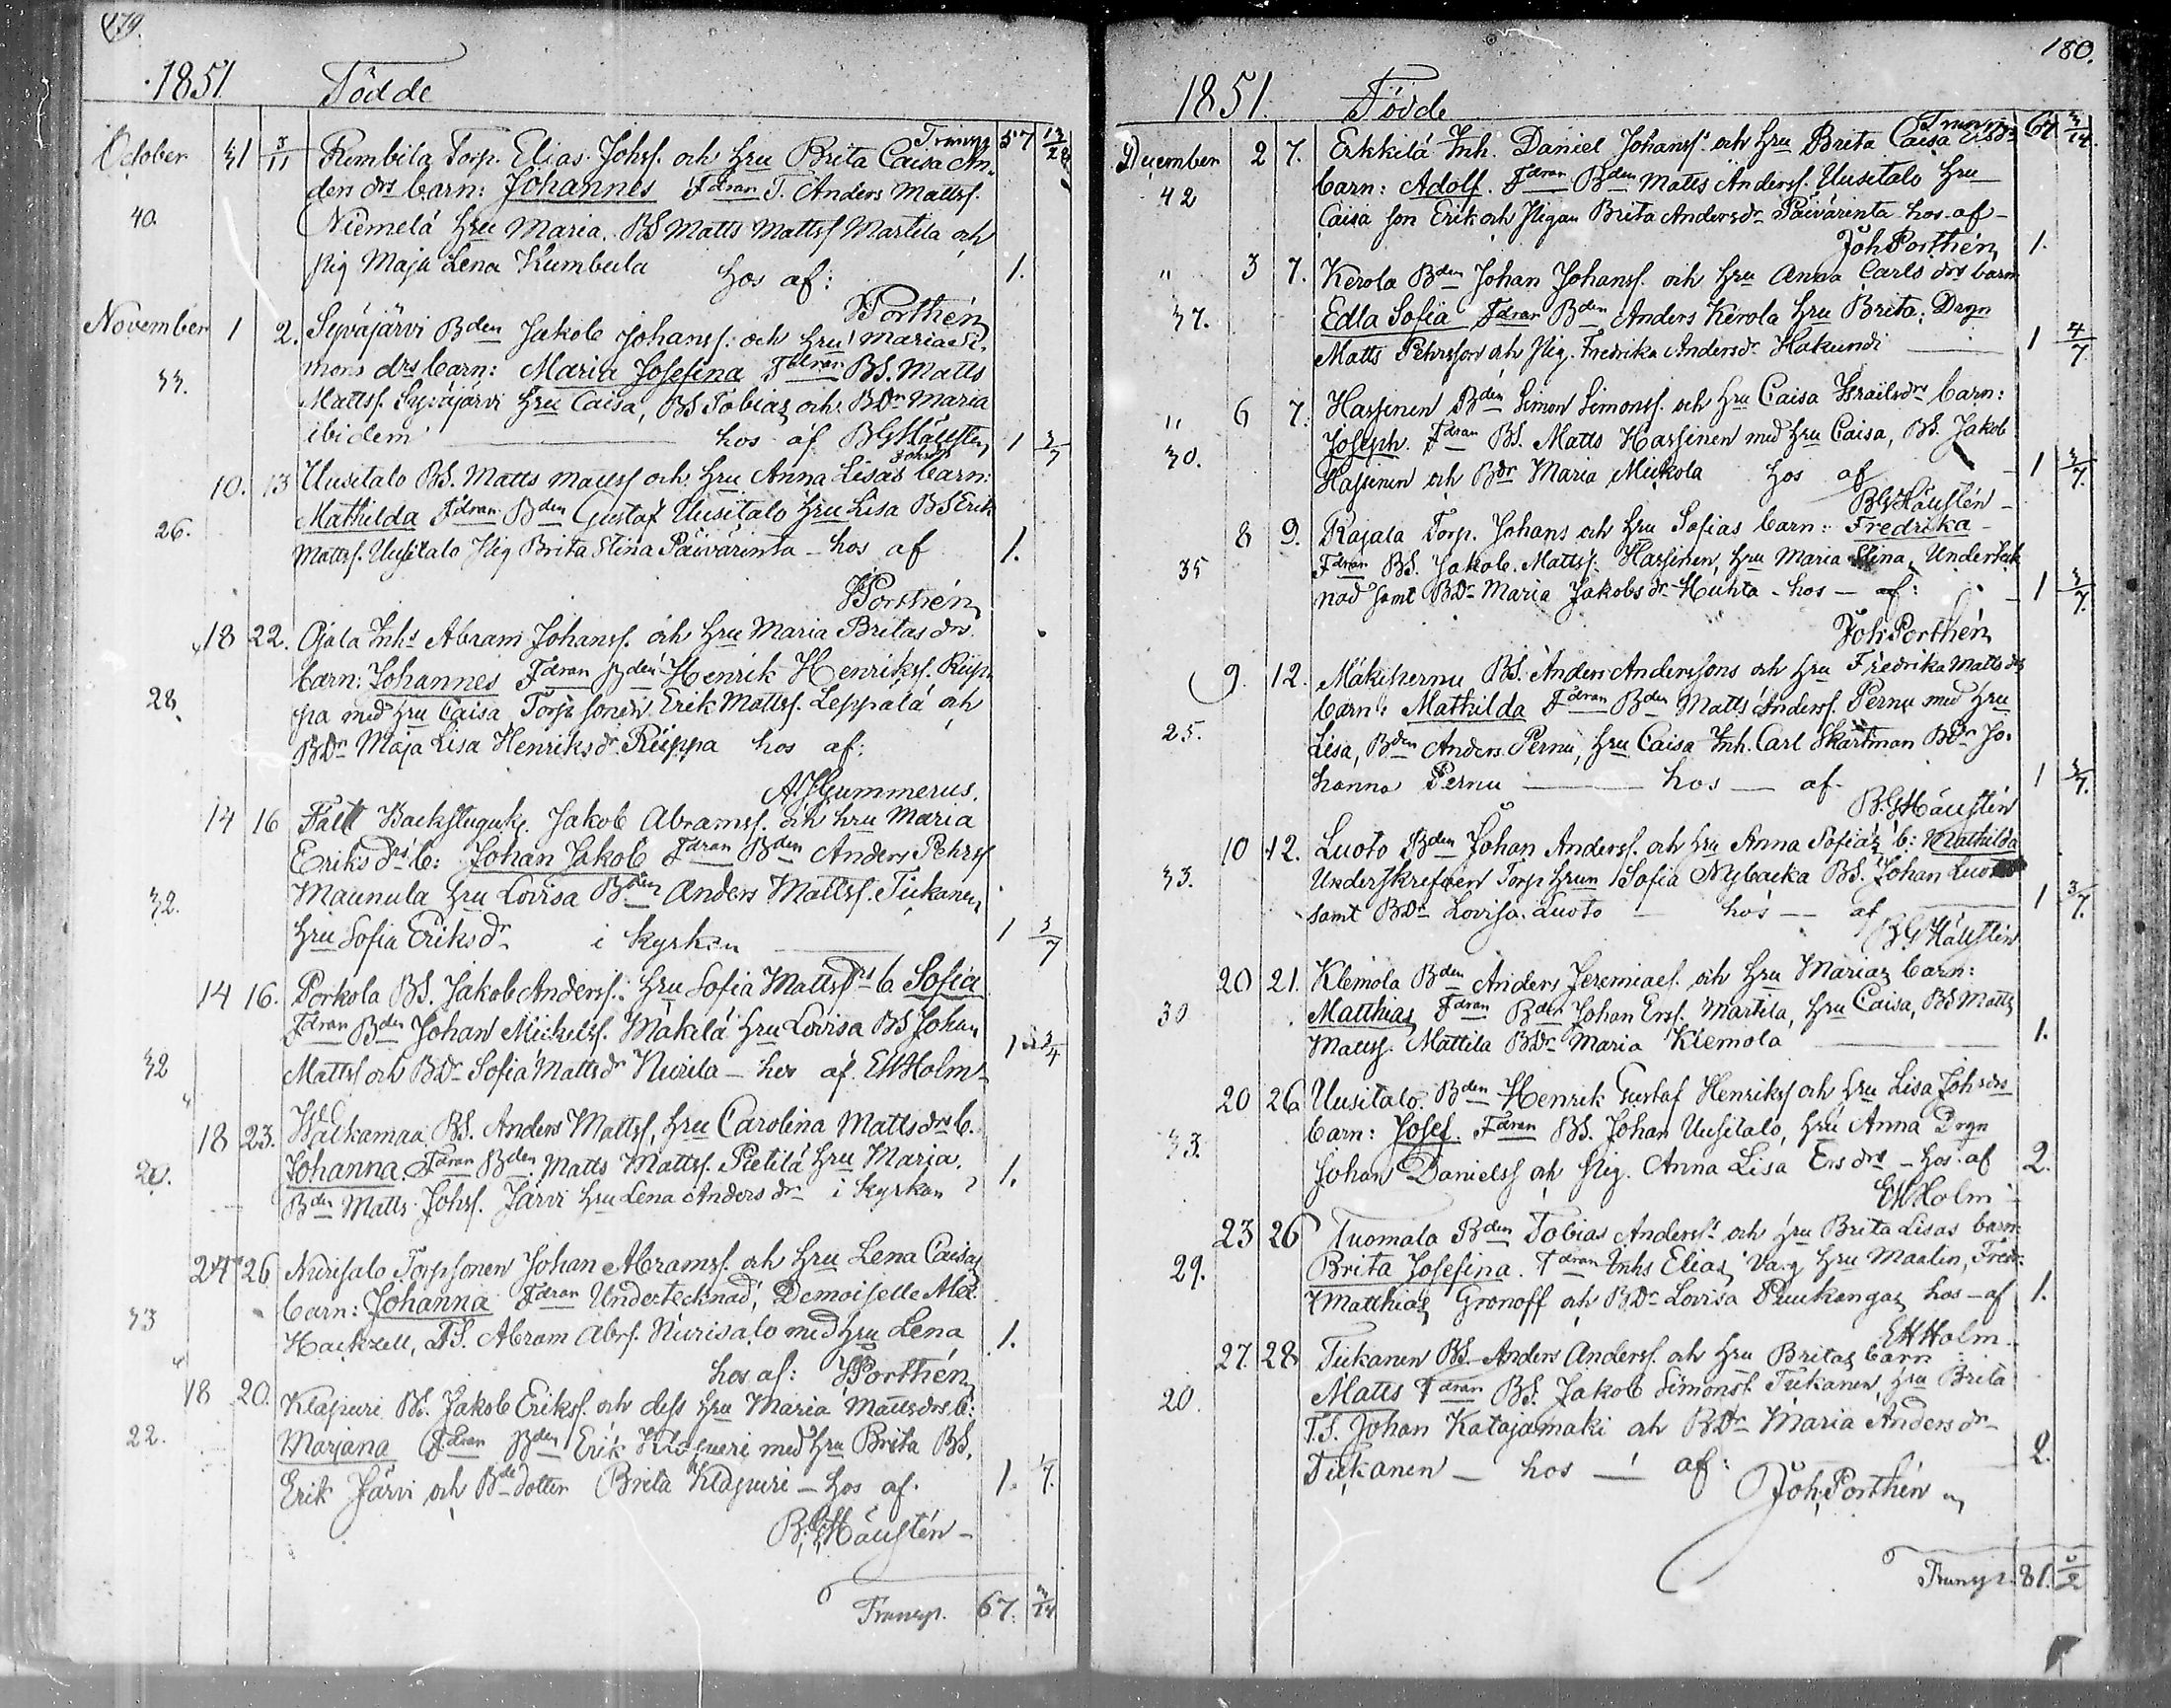 179.
1851. Födde
Transp. 57 13/28
October 31 3/11 Rumbila Torp. Elias Johss. och hru Brita Caisa An-
ders drs barn: Johannes Fdran T. Anders Mattss.
40. Niemelä hru Maria, BS Matts Mattss Martila och
pig Maja Lena Kumbula hos af: 1.
Porthén
November 1 2. Syväjärvi Bden Jakob Johanss. och hru Maria Si-
mons drs barn: Maria Josefina Fdran BS. Matts
33. Mattss. Syväjärvi hru Caisa, BS Tobias och BDr Maria
ibidem hos af BGHäusten 1 3/7
10. 13 Uusitalo BS. Matts Mattss och hru Anna Lisas barn:
Mathilda Fdran Bden Gustaf Uusitalo hru Lisa BS Erik
26. Mattss. Uusitalo Pig Brita Stina Päivärinta - hos af 1.
Porthén
18 22. Ojala Inhs Abram Johanss. och hru Maria Britas drs
barn: Johannes Fdran Bden Henrik Henrikss. Riip-
28. pa med hru Caisa Torp sonen Erik Mattss. Leppälä och
BDr Maja Lisa Henriksdr Riippa hos af:
Gummerus.
14 16 Fält Backstuguk. Jakob Abramss. och hru Maria
Eriks drs b: Johan Jakob Fdran Bden Anders Pehrss
32. Maunula hru Lovisa Bden Anders Mattss. Tiikanen
hru Sofia Eriksdr i kyrkan 1 3/7
14 16. Porkola BS. Jakob Anderss. hru Sofia Mattsdrs b. Sofia
Fdran Bden Johan Mickelss. Mäkilä hru Lovisa BS Johan
32 Mattss och BDr Sofia Mattsdr Niirila - hos af. EWHolm 1 3/4
18 23. Walkamaa BS. Anders Mattss, hru Carolina Mattsdrs b.
Johanna Fdran Bden Matts Mattss. Pietilä hru Maria.
Bden Matts Johss. Järvi hru Lena Anders dr i kyrkan 1.
24 26 Niirisalo Torpsonen Johan Abramss. och hru Lena Caisas
barn: Johanna Fdran Undertecknad, Demoiselle Alex.
33 Hackzell, TS. Abram Abrs. Niirisalo med hru Lena 1.
hos af: Porthén
18 20. Klapuri BS. Jakob Erikss. och dess hru Maria Mattsdrs b:
22. Marjana Fdran Bden Erik Klapuri med hru Brita BS.
Erik Järvi och Bdedotter Brita Klapuri - hos af. 1.
B.G.Häusten
Transp. 67. 3/14
180.
1851. Födde
Transp. 67 3/14
December 2 7. Erkkilä Inh. Daniel Johanss. och hru Brita Caisa
42 barn: Adolf. Fdran Bden Matts Anderss. Uusitalo hru
Caisa son Erik och Pigan Brita Andersdr Päivärinta hos af
Joh Porthén 1.
" 3 7. Kerola Bden Johan Johanss. och hru Anna Carls drs barn
37. Edla Sofia Fdran Bden Anders Kerola hru Brita; Drgn
Matts Pehrsson och Pig. Fredrika Andersdr Hakundi 1 4/7.
" 6 7. Hassinen Bden Simon Simonss. och hru Caisa Israelsdrs barn:
30. Joseph. Fdran BS. Matts Hassinen med hru Caisa, BS. Jakob
Hassinen och BDr Maria Mickola hos af 1 3/7.
BGHäusten
8 9. Rajala Torp. Johans och hru Sofias barn: Fredrika
35 Fdran BS. Jakob. Mattss. Hassinen, hru Maria Stina, Underteck
nad samt BDr Maria Jakobsdr Huhta - hos - af: 1 3/7
Joh Porthén
9. 12. Mäkipernu BS. Anders Anderssons och hru Fredrika Matts drs
barn: Mathilda Fdran Bden Matts Anderss. Pernu med hru
25. Lisa, Bden Anders Pernu, hru Caisa Inh. Carl Skartman BDr Jo-
hanna Pernu hos af. 1 3/7.
B.GHäusten
10 12. Luoto Bden Johan Anderss. och hru Anna Sofias b: Mathilda
33. Underskrefven Torp hrun Sofia Nybacka BS. Johan Luoto
samt BDr Lovisa Luoto hos af 1 3/7.
BGHäusten
20 21. Klemola Bden Anders Jeremiaes. och hru Marias barn:
30 Matthias Fdran Bden Johan Erss. Martila, hru Caisa, BS Matts
Mattss. Mattila BDr Maria Klemola 1.
20 26 Uusitalo. Bden Henrik Gustaf Henrikss och hru Lisa Johsdrs
33. barn: Josef. Fdran BS. Johan Uusitalo, hru Anna Drgn
Johan Danielss och pig. Anna Lisa Ersdr - hos af 2.
EWHolm
23 26 Tuomala Bden Tobias Anderss och hru Brita Lisas barn:
29. Brita Josefina. Fdran Inhs Elias hru Maalin,
Matthias Gronoff och BDr Lovisa Puukangas hos - af 1.
EWHolm
27. 28 Tiikanen BS Anders Anderss. och hru Britas barn
20. Matts Fdran BS. Jakob Simonss. Tiikanen hru Brita
T.S. Johan Katajamäki och BDr Maria Andersdr
Tiikanen - hos - af: 2.
Joh. Porthén
Transp. 81.